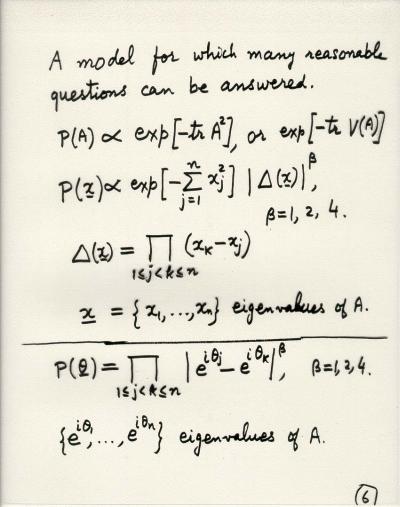 A model for which many reasonable
questions can be answered.
P(A) ∝ exp[-tr A²], or exp[-tr V(A)]
P(x̲) ∝ exp[-∑_{j=1}^{n} x_j²] |Δ(x̲)|^β,
β=1, 2, 4.
Δ(x̲) = ∏_{1≤j<k≤n} (x_k-x_j)
x̲ = {x₁,...,xₙ} eigenvalues of A.
P(θ̲) = ∏_{1≤j<k≤n} |e^{iθ_j} - e^{iθ_k}|^β, β=1,2,4.
{e^{iθ₁},...,e^{iθₙ}} eigenvalues of A.
6